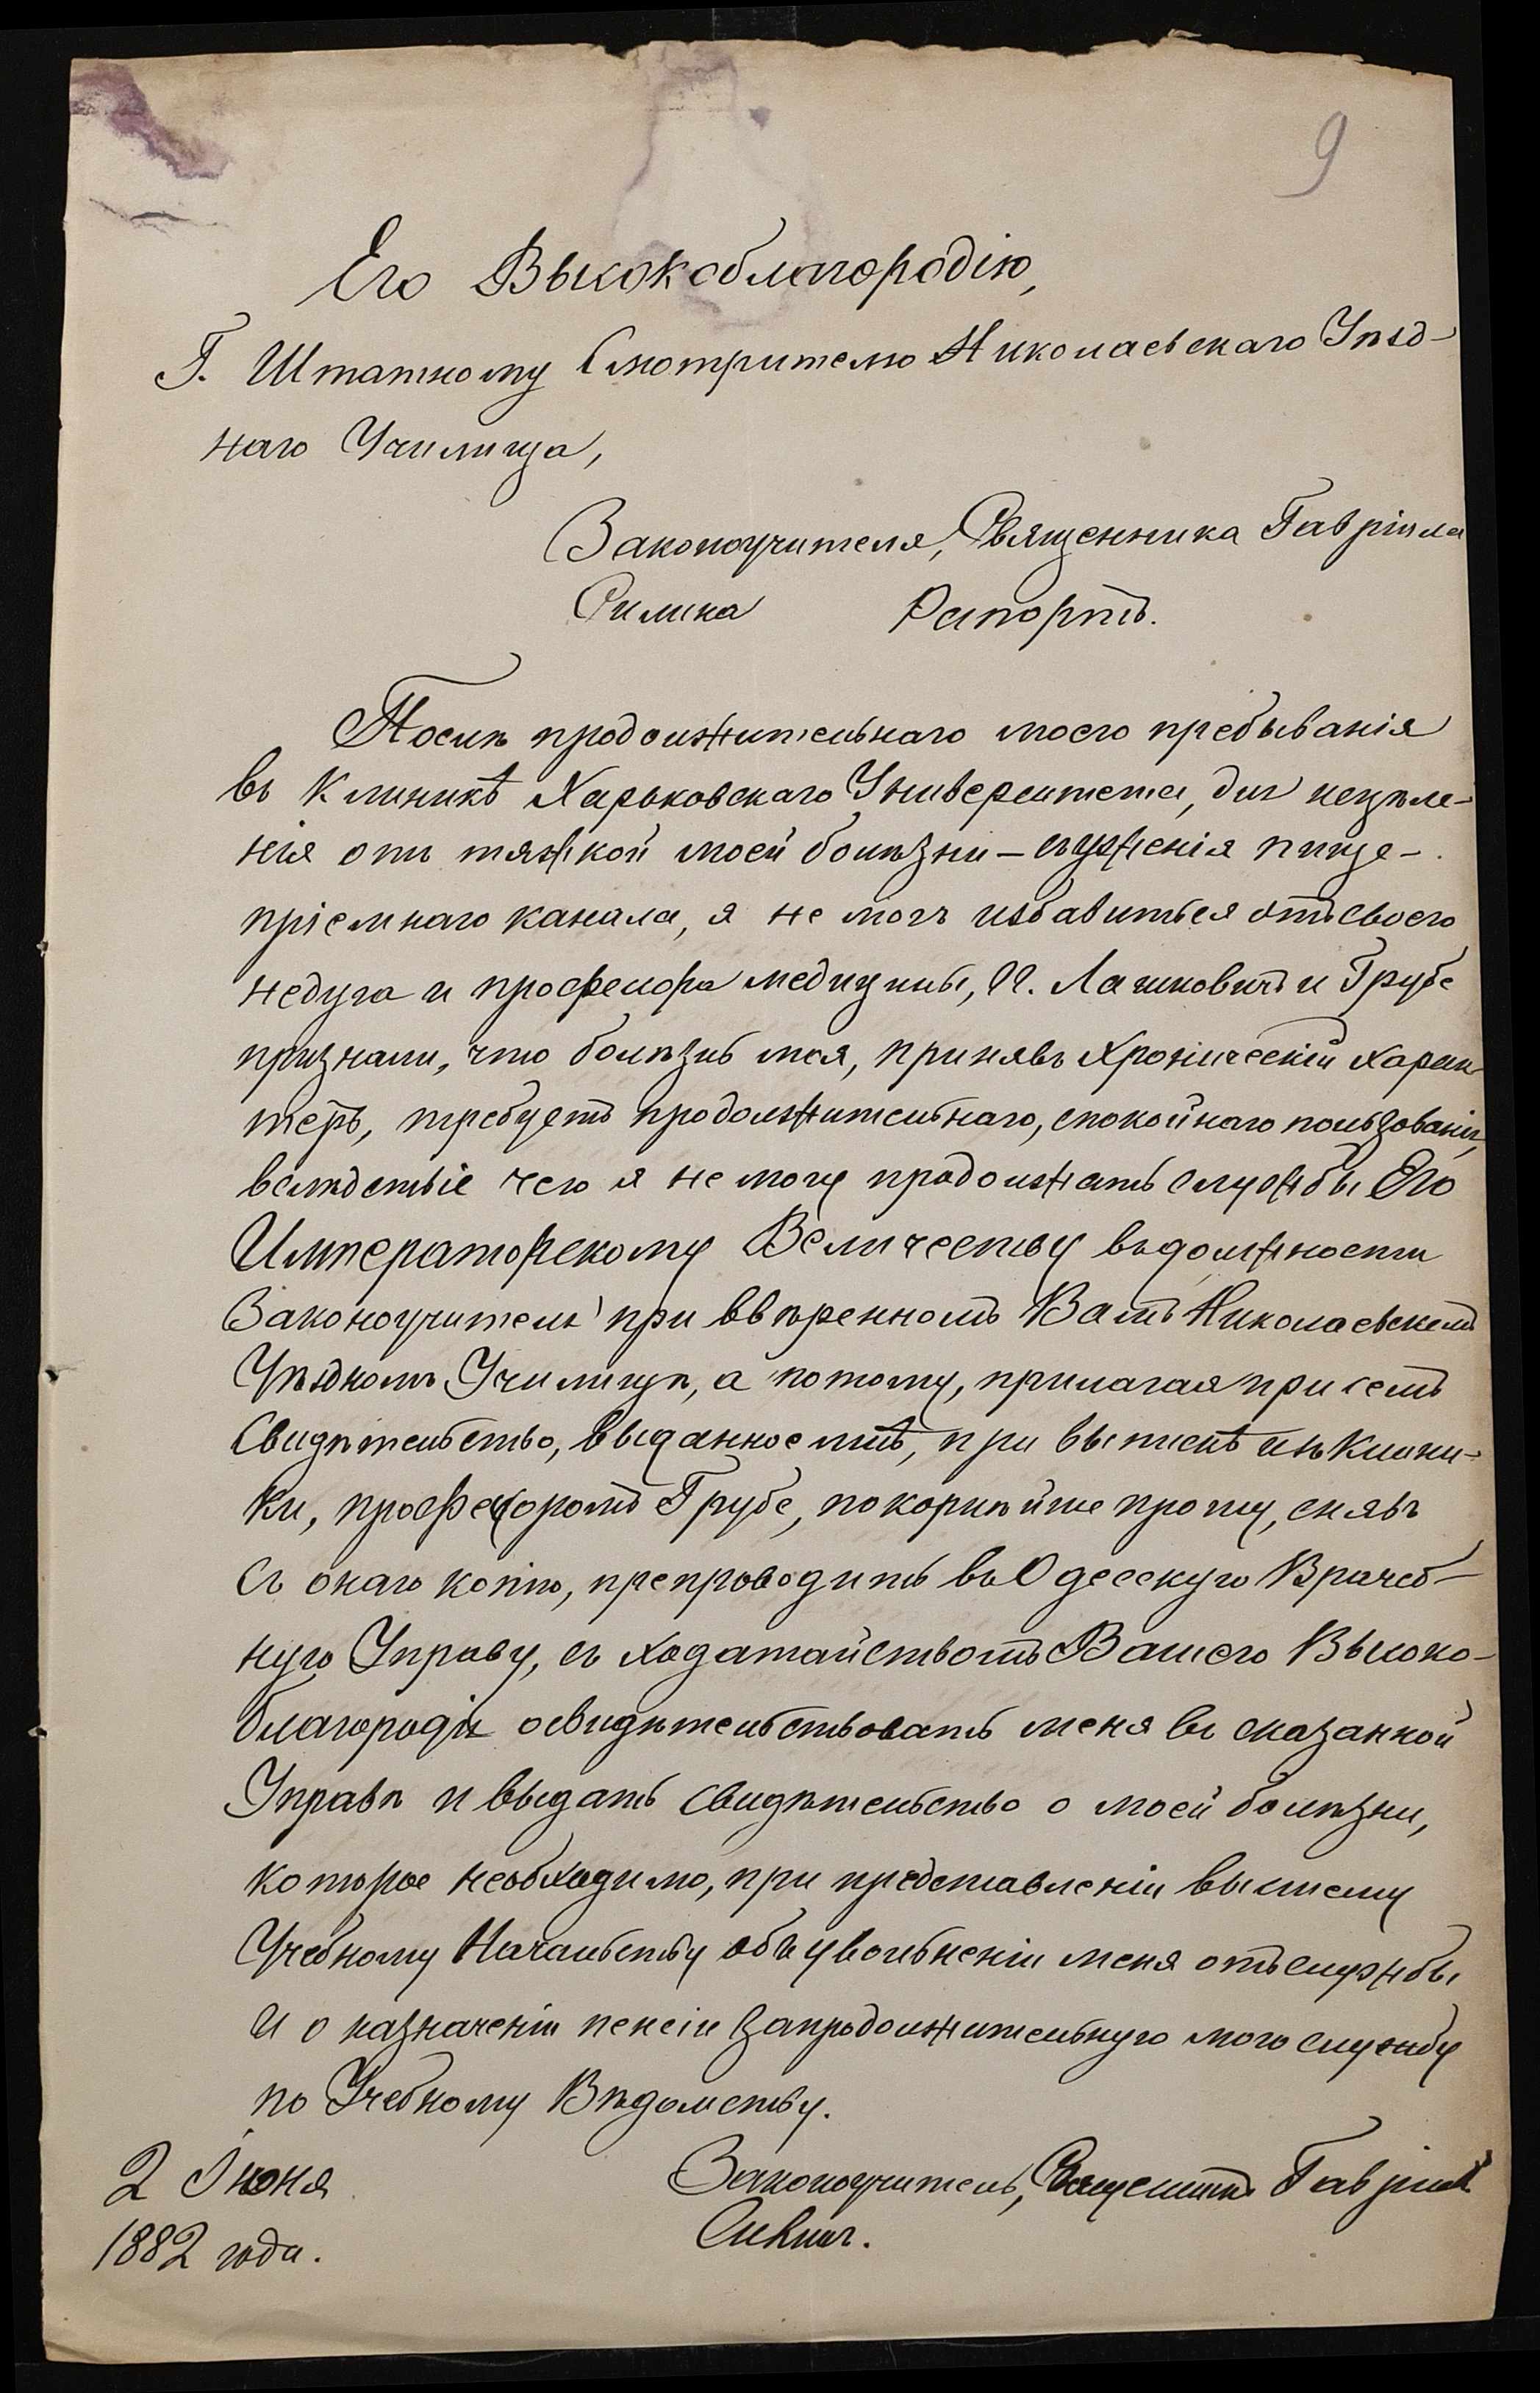 9
Его Высокоблагородію,
Г. Штатному Смотрителю Николаевскаго Уѣзд-
наго Училища,
Законоучителя, Священника Гавріила
Рапортъ.
Послѣ продолжительнаго моего пребыванія
въ Клиникѣ Харьковскаго Университета, для исцѣле-
нія отъ тяжкой моей болѣзни – съуженія пище-
пріемнаго канала, я не могъ избавиться отъ своего
недуга и професора медицины, Гг. Лашкевичъ и Грубе
признали, что болѣзнь моя, принявъ хроническій харак-
теръ, требуетъ продолжительнаго, спокойнаго пользованія,
вслѣдствіе чего я не могу продолжать службы Его
Императорскому Величеству въ должности
Законоучителя при ввѣренномъ Вамъ Николаевскомъ
Уѣздномъ Училищѣ, а потому, прилагая при семъ
Свидѣтельство, выданное мнѣ, при выпискѣ изъ Клини-
ки, професоромъ Грубе, покорнѣйше прошу, снявъ
съ онаго копію, препроводить въ Одесскую Врачеб-
ную Управу, съ ходатайствомъ Вашего Высоко-
благородія освидѣтельствовать меня въ сказанной
Управѣ и выдать свидѣтельство о моей болѣзни,
которое необходимо, при представленіи высшему
Учебному Начальству объ увольненіи меня отъ службы
и о назначеніи пенсіи за продолжительную мою службу
по Учебному Вѣдомству.
2 Іюня
1882 года.
Законоучитель, Священникъ Гавріилъ